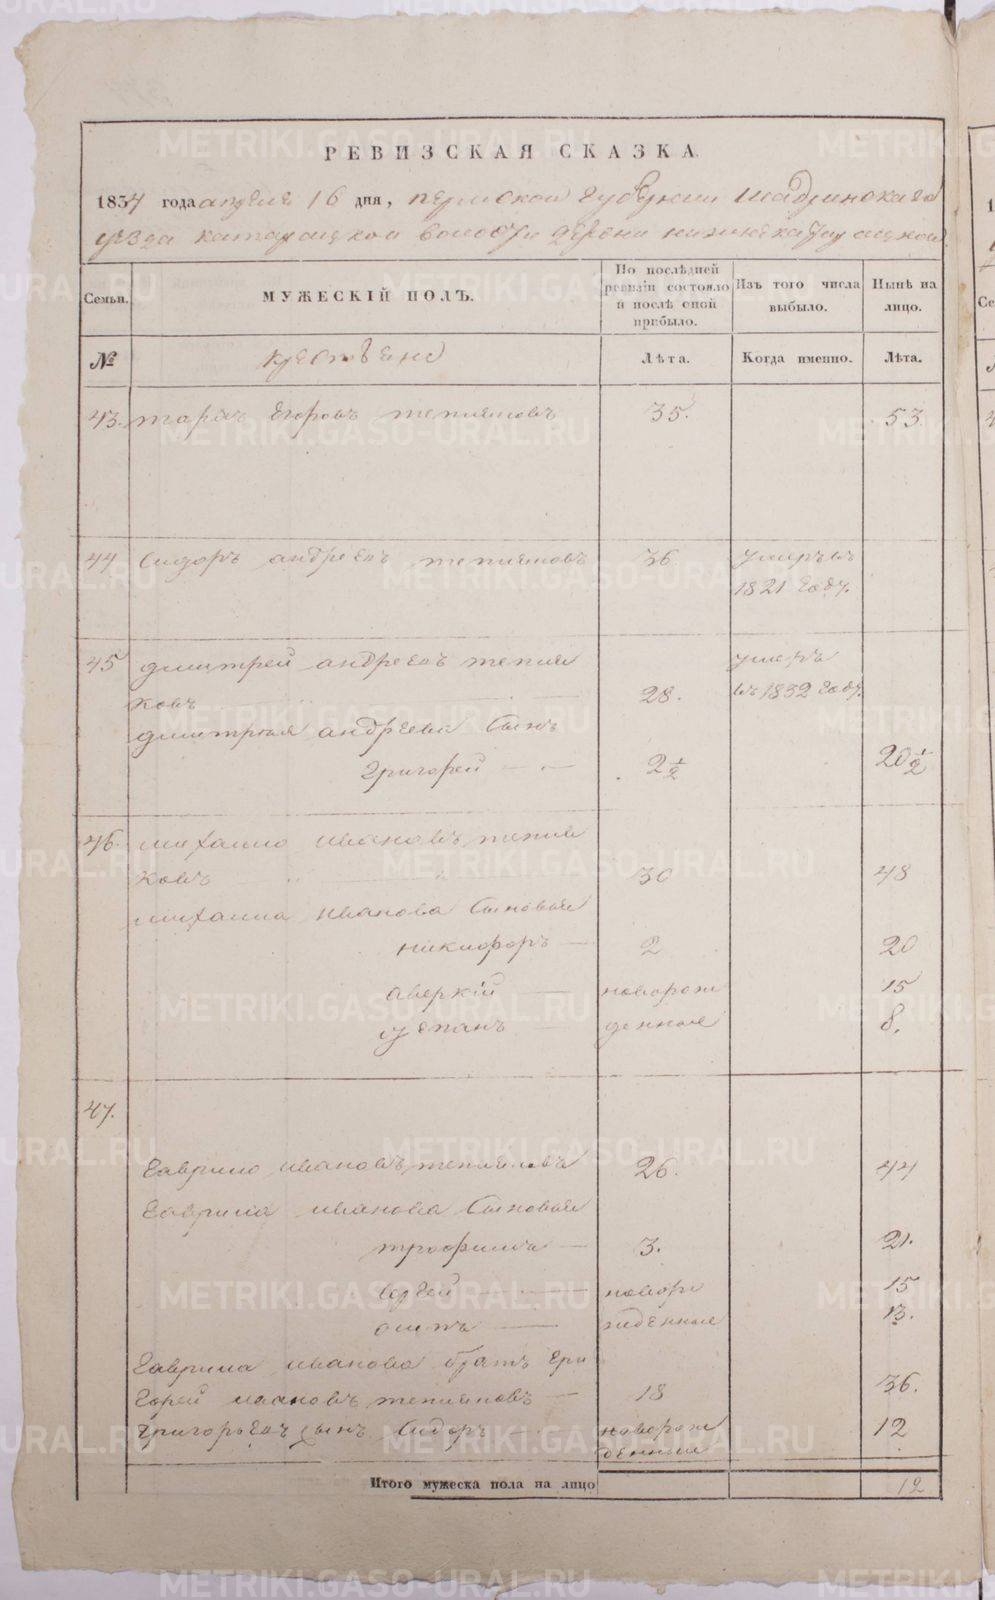 РЕВИЗСКАЯ СКАЗКА
1834 года апреля 16 дня, пермской губернии Шадринскаго
уезда катайской волости деревни нижнекатайской
Семьи.
МУЖЕСКІЙ ПОЛЪ.
По послѣдней ревизіи состояло и послѣ оной прибыло.
Изъ того числа выбыло.
Нынѣ на лицо.
№
крестьяне
Лѣта.
Когда именно.
Лѣта.
43. Егоровъ 35. 53
44 Сидоръ андреевъ 36 умеръ въ
1821 году.
45 дмитрей андреевъ умеръ
ковъ 28. въ 1832 году.
дмитрья андреева Сынъ
Григорей 2 1/2 20 1/2
46. михаило ивановъ
ковъ 30 48
михаила иванова Сыновья
никифоръ 2 20
аверкій новорож 15
степанъ денные 8.
47.
Гаврило ивановъ 26. 44
Гаврила иванова Сыновья
трофимъ 3. 21.
Сергей новоро 15
осипъ жденные 13.
Гаврила иванова братъ Гри
горей ивановъ 18 36.
Григорьевъ сынъ Сидоръ новорож 12
денный
Итого мужеска пола на лицо 12
METRIKI.GASO-URAL.RU